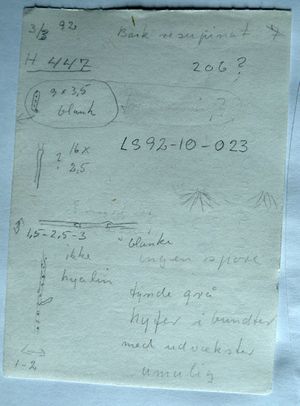 3/3 92 Bark resupinat
H 447 206?
9 x 3,5
blank
LS92-10-023
? 16 x
2,5
1,5-2,5-3 blanke
ikke ingen spore
hyalin tynde grå
hyfer i bundter
med udvækster
1-2 umulig